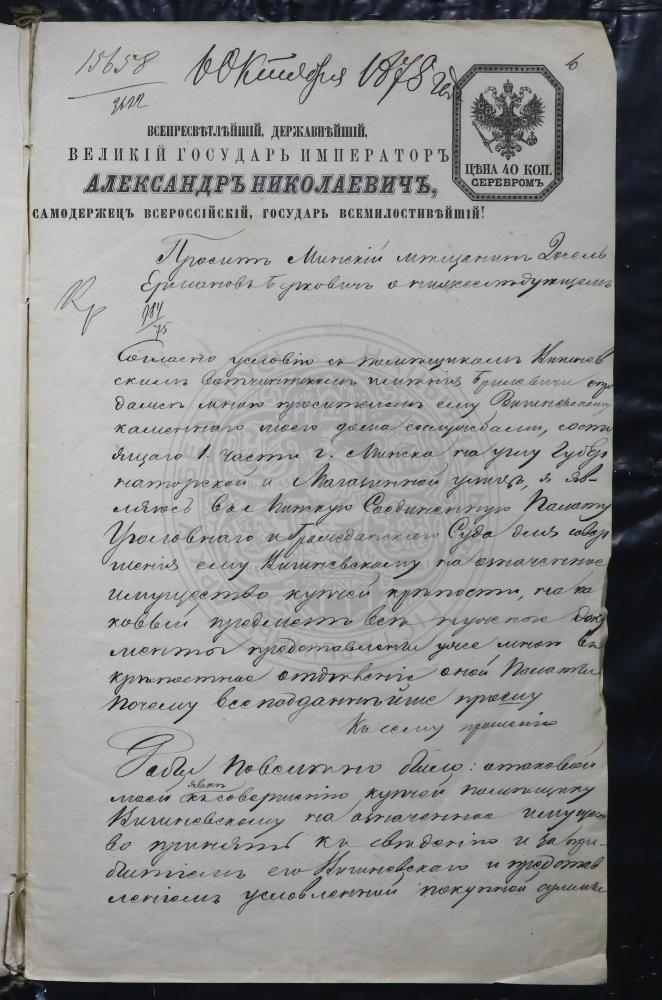 15658
3622
6 Октября 1878 год
6
ЦѢНА 40 КОП.
СЕРЕБРОМЪ
ВСЕПРЕСВѢТЛѢЙШІЙ, ДЕРЖАВНѢЙШІЙ,
ВЕЛИКІЙ ГОСУДАРЬ ИМПЕРАТОРЪ
АЛЕКСАНДРЪ НИКОЛАЕВИЧЪ,
САМОДЕРЖЕЦЪ ВСЕРОССІЙСКІЙ, ГОСУДАРЬ ВСЕМИЛОСТИВѢЙШІЙ!
Проситъ Минскій мѣщанинъ Іосель
Бурковичъ о нижеслѣдующемъ
984
75
Согласно условію съ помѣщикомъ
имѣнія о про
мною просителемъ ему Вишневскому
каменнаго моего дома со службами, состо
ящаго 1 части г. Минска на углу Губер
наторской и Магазинной улицъ, я яв-
ляюсь въ Минскую Соединенную Палату
Уголовнаго и Гражданскаго Суда для совер
шенія ему Вишневскому на означенное
имущество купчей крѣпости, на ка
ковый предметъ всѣ нужные доку
менты представлены уже мною въ
крѣпостное отдѣленіе оной Палаты
Почему всеподданнѣйше прошу
Къ сему прошенію
Дабы повелѣно было: таковой
моей явкѣ къ совершенію купчей помѣщику
Вишневскому на означенное имущест
во принять къ свѣденію и за при-
бытіемъ его Вишневскаго и представ
леніемъ условленной покупной суммы